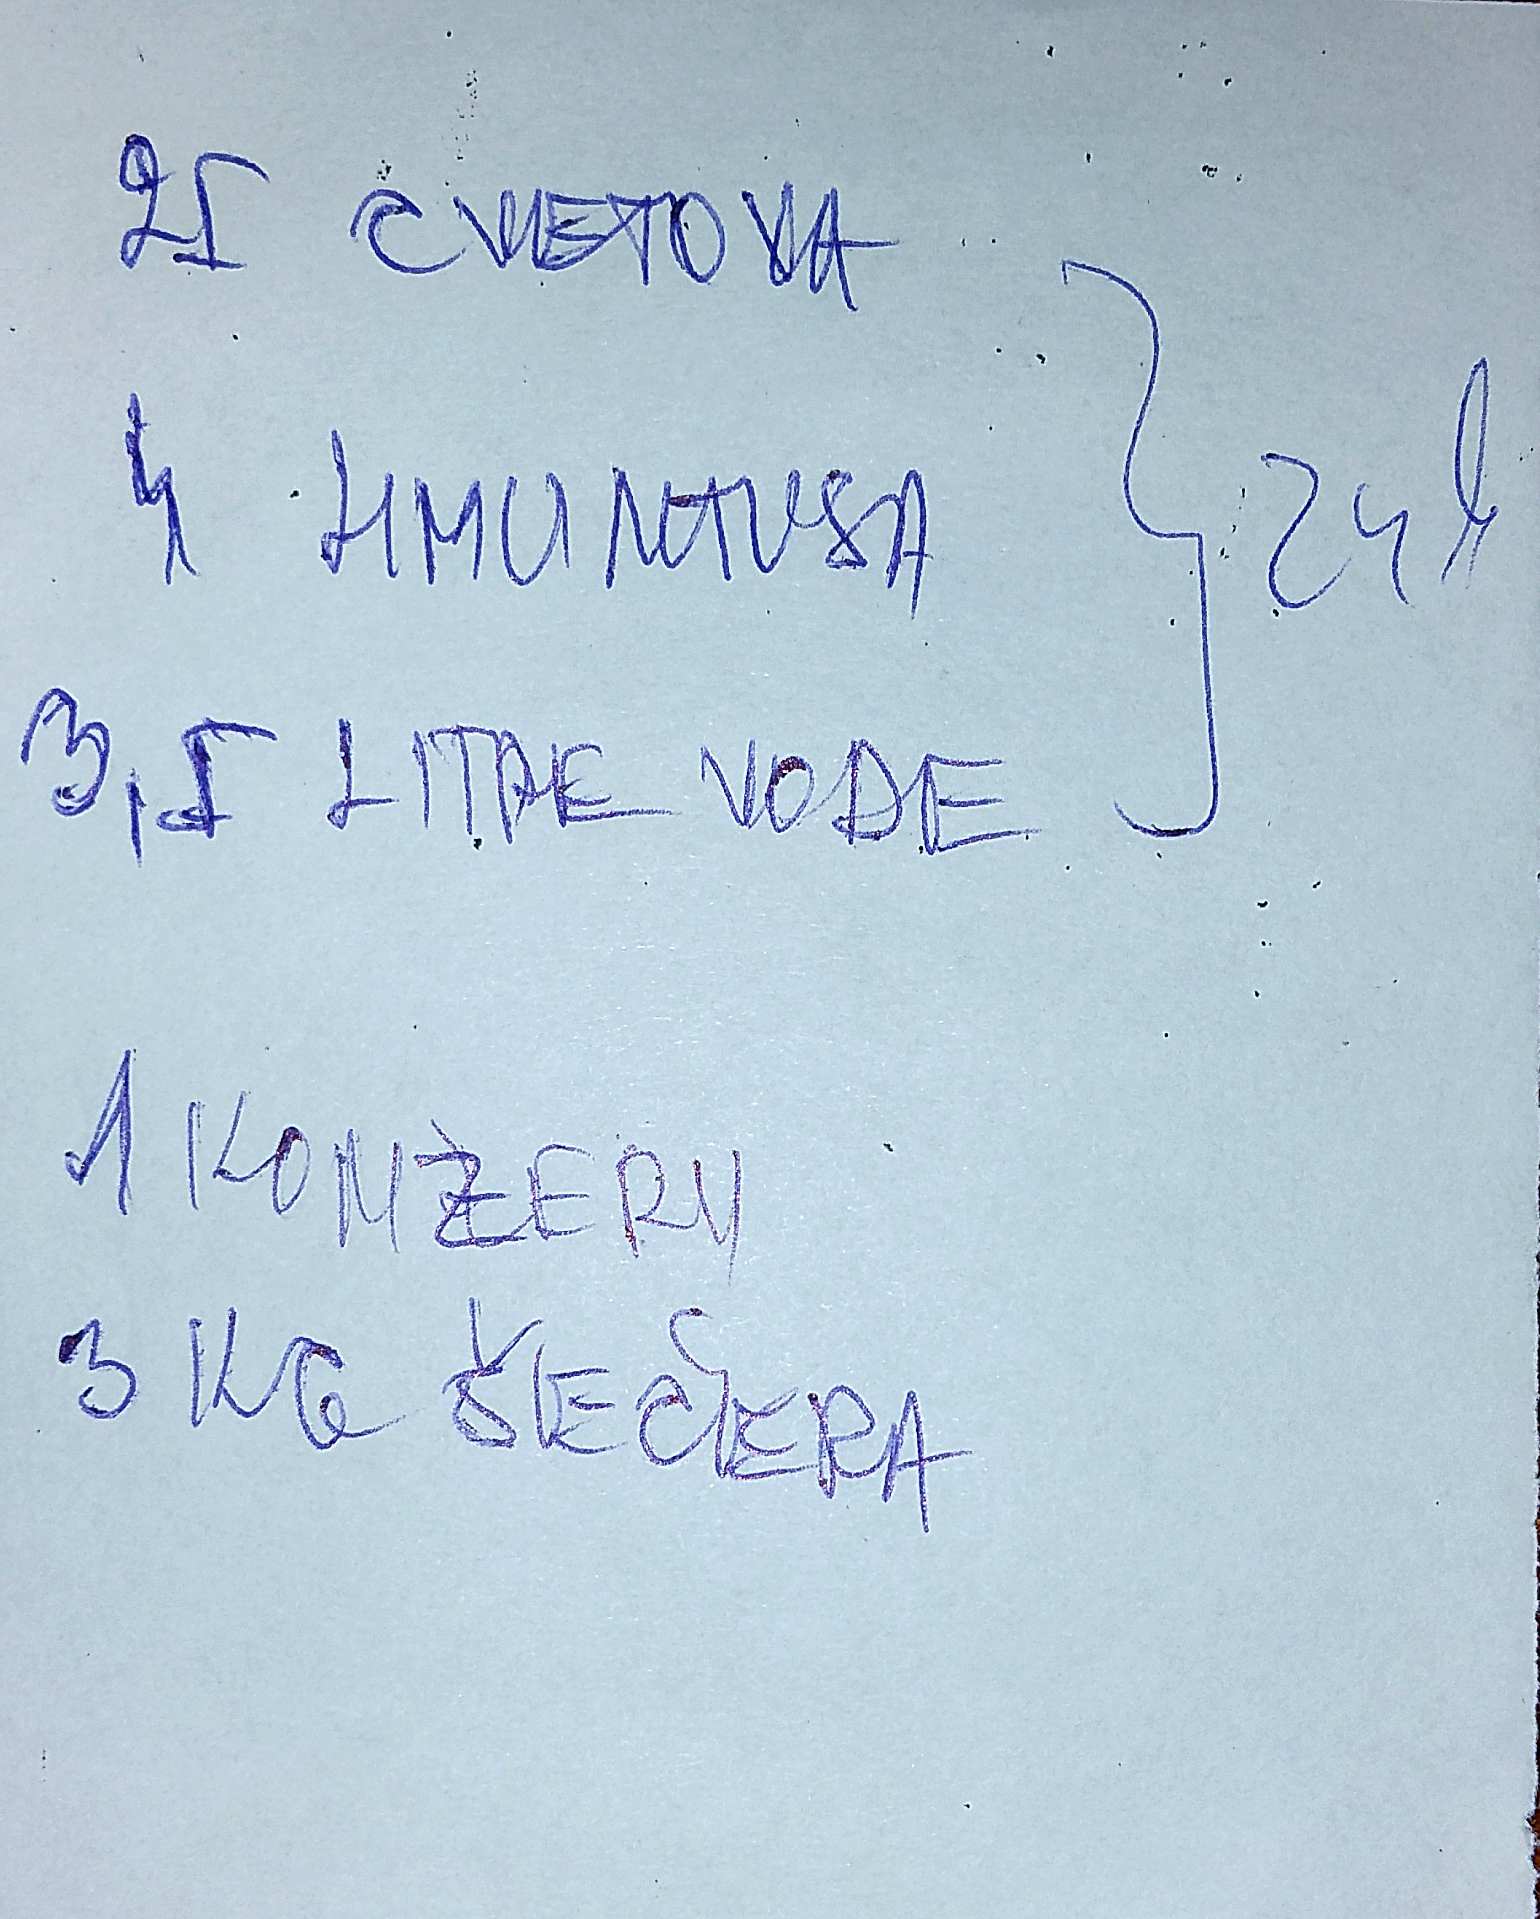 25 CVIETOVA
4 LIMUNTUSA
3,5 LITRE VODE
24h
1 KONZERV
3 KG ŠEČERA